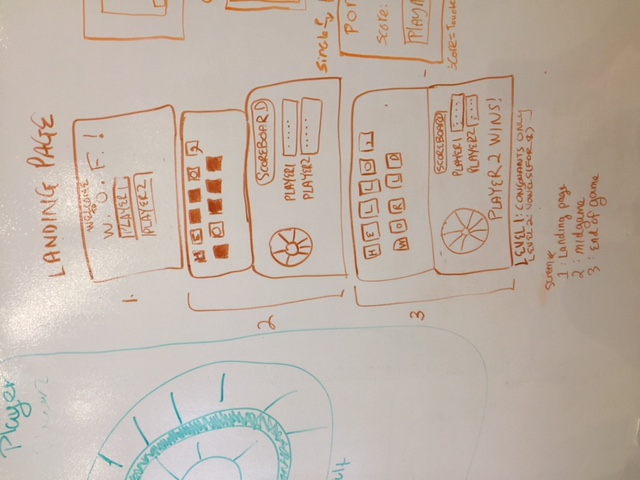 Player
LANDING PAGE
1.
WELCOME
TO
W. O. F. !
PLAYER 1
PLAYER 2
2
H E O ,
O
SCOREBOARD
PLAYER1
PLAYER2
3
H E L L O ,
W O R L D
SCOREBOARD
PLAYER1
PLAYER2
PLAYER 2 WINS!
LEVEL 1: CONSONANTS ONLY
LEVEL 2: VOWELS (FOR $)
Screen
1: Landing page
2: midgame
3: End of game
Single
Por
Score:
PLAYA
Score = Touch
ult